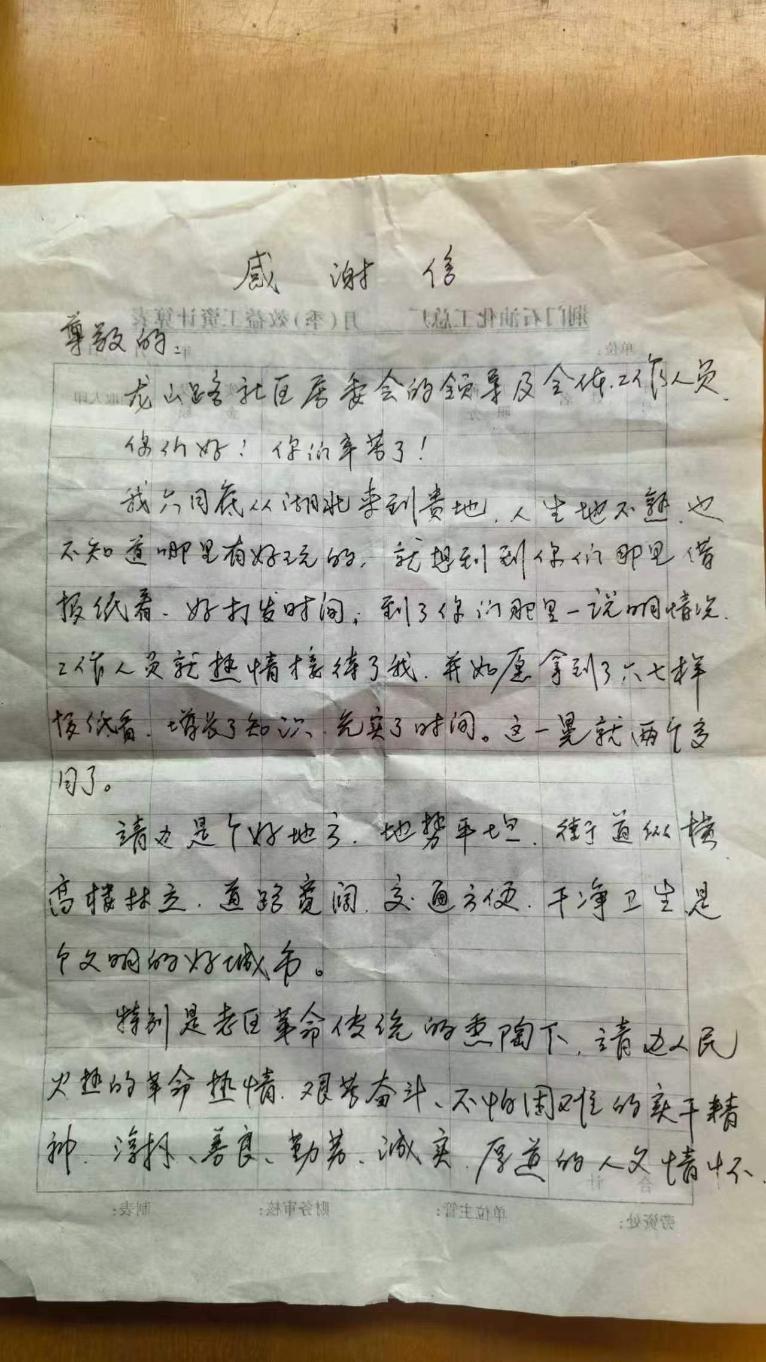 感谢信
尊敬的:
龙山路社区居委会的领导及全体工作人员.
你们好！你们辛苦了！
我六月底从湖北来到贵地，人生地不熟，也
不知道哪里有好玩的，就想到到你们那里借
报纸看、好打发时间；到了你们那里一说明情况.
工作人员就热情接待了我，并如愿拿到了六七样
报纸看，增长了知识、充实了时间。这一晃就两个多
月了。
靖边是个好地方，地势平坦，街道纵横，
高楼林立，道路宽阔，交通方便，干净卫生是
个文明的好城市。
特别是老区革命传统的熏陶下，靖边人民
火热的革命热情，艰苦奋斗、不怕困难的实干精
神，淳朴、善良、勤劳、诚实，厚道的人文情怀.
荆门石油化工总厂 月(季)效益工资计算表
单位:
劳资处: 单位主管: 财务审核: 制表: